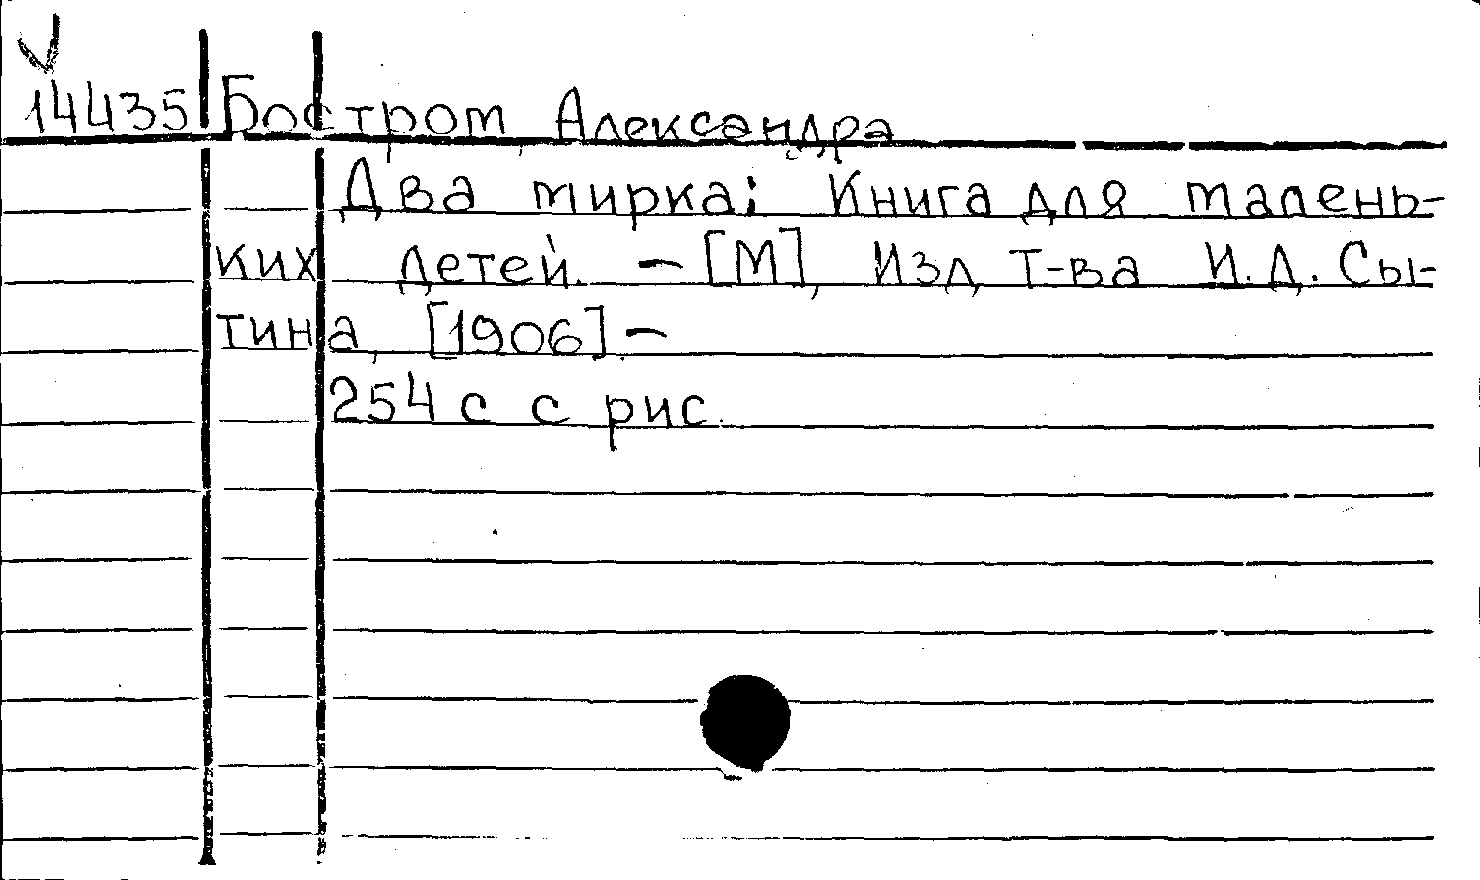 14435 Бостром Александра
Два мирка: Книга для малень-
ких детей. - [М], Изд Т-ва И.Д. Сы-
тина, [1906]. -
254 с с рис.